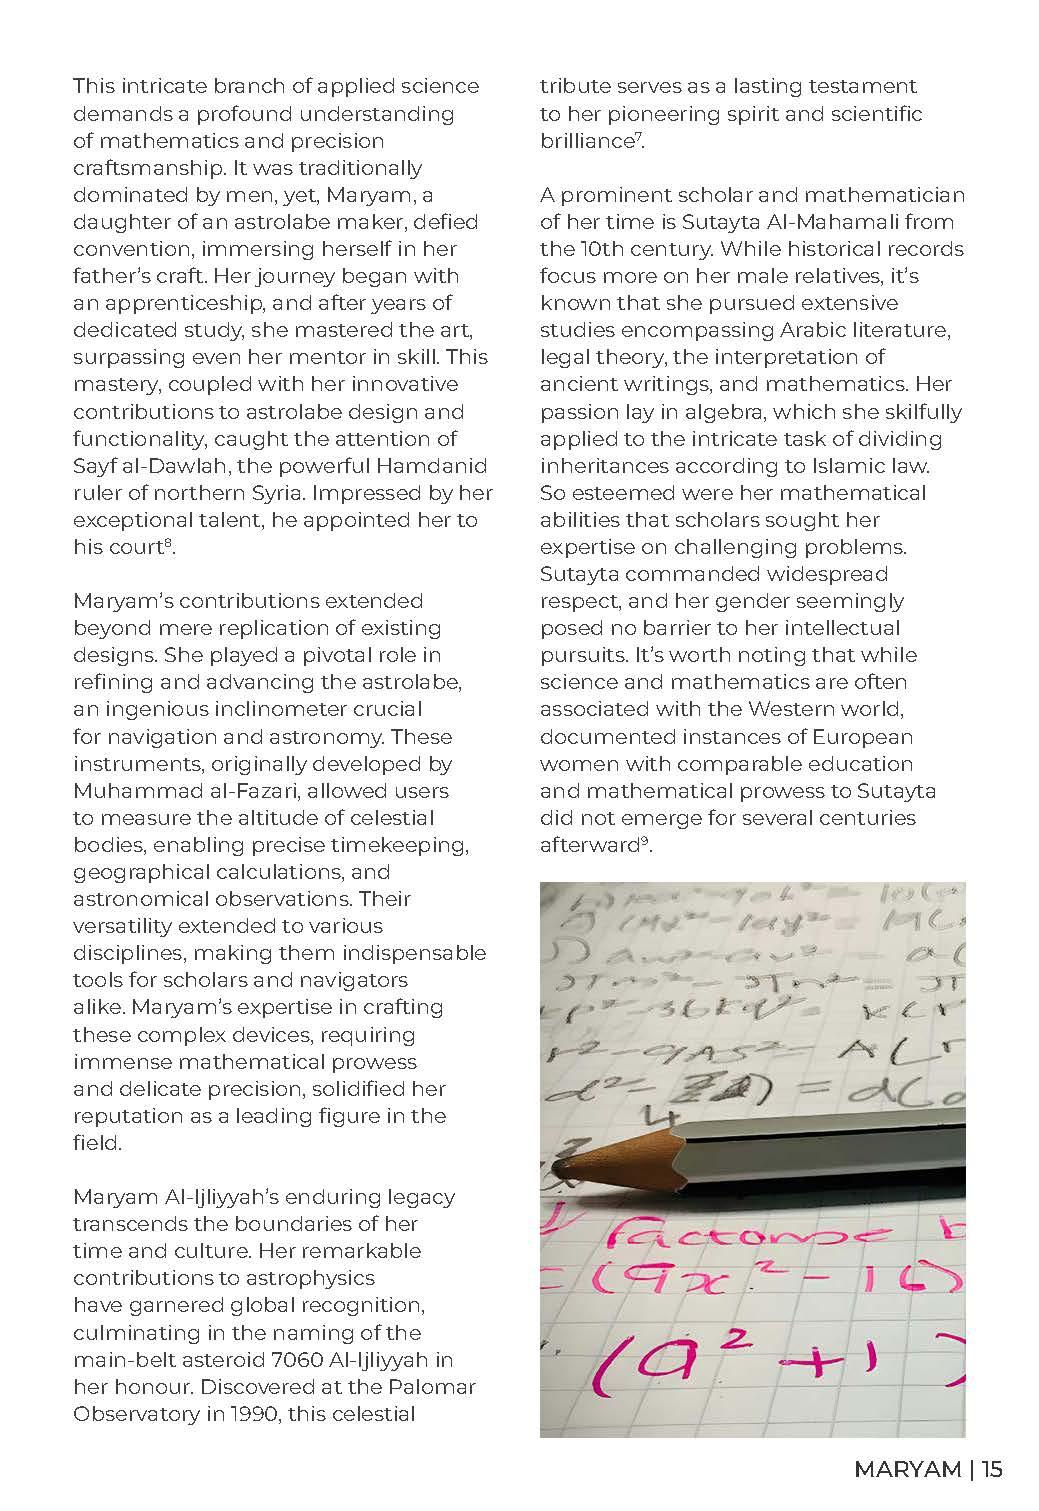 This intricate branch of applied science
demands a profound understanding
of mathematics and precision
craftsmanship. It was traditionally
dominated by men, yet, Maryam, a
daughter of an astrolabe maker, defied
convention, immersing herself in her
father's craft. Her journey began with
an apprenticeship, and after years of
dedicated study, she mastered the art,
surpassing even her mentor in skill. This
mastery, coupled with her innovative
contributions to astrolabe design and
functionality, caught the attention of
Sayf al-Dawlah, the powerful Hamdanid
ruler of northern Syria. Impressed by her
exceptional talent, he appointed her to
his court⁸.
Maryam's contributions extended
beyond mere replication of existing
designs. She played a pivotal role in
refining and advancing the astrolabe,
an ingenious inclinometer crucial
for navigation and astronomy. These
instruments, originally developed by
Muhammad al-Fazari, allowed users
to measure the altitude of celestial
bodies, enabling precise timekeeping,
geographical calculations, and
astronomical observations. Their
versatility extended to various
disciplines, making them indispensable
tools for scholars and navigators
alike. Maryam's expertise in crafting
these complex devices, requiring
immense mathematical prowess
and delicate precision, solidified her
reputation as a leading figure in the
field.
Maryam Al-Ijliyyah's enduring legacy
transcends the boundaries of her
time and culture. Her remarkable
contributions to astrophysics
have garnered global recognition,
culminating in the naming of the
main-belt asteroid 7060 Al-Ijliyyah in
her honour. Discovered at the Palomar
Observatory in 1990, this celestial
tribute serves as a lasting testament
to her pioneering spirit and scientific
brilliance⁷.
A prominent scholar and mathematician
of her time is Sutayta Al-Mahamali from
the 10th century. While historical records
focus more on her male relatives, it's
known that she pursued extensive
studies encompassing Arabic literature,
legal theory, the interpretation of
ancient writings, and mathematics. Her
passion lay in algebra, which she skilfully
applied to the intricate task of dividing
inheritances according to Islamic law.
So esteemed were her mathematical
abilities that scholars sought her
expertise on challenging problems.
Sutayta commanded widespread
respect, and her gender seemingly
posed no barrier to her intellectual
pursuits. It's worth noting that while
science and mathematics are often
associated with the Western world,
documented instances of European
women with comparable education
and mathematical prowess to Sutayta
did not emerge for several centuries
afterward⁹.
factorise
= (9x² - 16)
(a² + 1)
MARYAM | 15